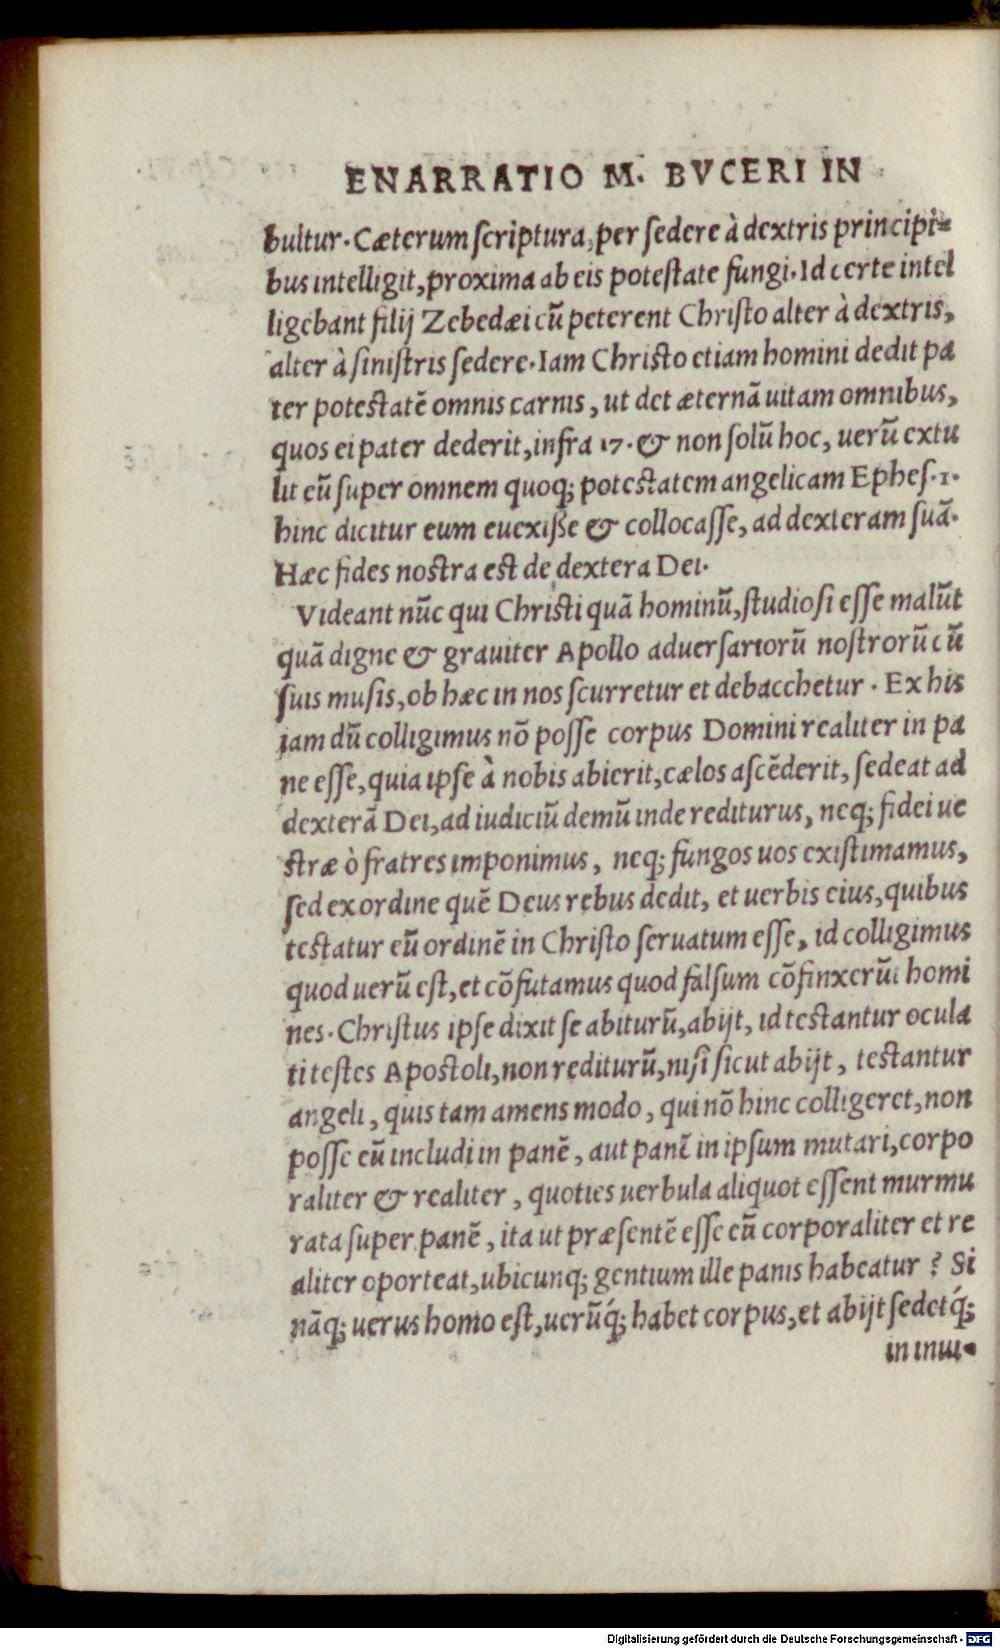 ENARRATIO M. BVCERI IN
bultur. Cæterum ſcriptura, per ſedere à dextris principi=
bus intelligit, proxima ab eis poteſtate fungi. Id certe intel
ligebant filij Zebedæi cũ peterent Chriſto alter à dextris,
alter à ſiniſtris ſedere. Iam Chriſto etiam homini dedit pa
ter poteſtatẽ omnis carnis, ut det æternã uitam omnibus,
quos ei pater dederit, infra 17. & non ſolũ hoc, uerũ extu
lit eũ ſuper omnem quoq; poteſtatem angelicam Epheſ. 1.
hinc dicitur eum euexiſſe & collocaſſe, ad dexteram ſuã.
Hæc fides noſtra eſt de dextera Dei.
Videant nũc qui Chriſti quã hominũ, ſtudioſi eſſe malũt
quã digne & grauiter Apollo aduerſariorũ noſtrorũ cũ
ſuis muſis, ob hæc in nos ſcurretur et debacchetur. Ex his
iam dũ colligimus nõ poſſe corpus Domini realiter in pa
ne eſſe, quia ipſe à nobis abierit, cælos aſcẽderit, ſedeat ad
dexterã Dei, ad iudiciũ demũ inde rediturus, neq; fidei ue
ſtræ ò fratres imponimus, neq; fungos uos exiſtimamus,
ſed ex ordine quẽ Deus rebus dedit, et uerbis eius, quibus
teſtatur eũ ordinẽ in Chriſto ſeruatum eſſe, id colligimus
quod uerũ eſt, et cõfutamus quod falſum cõfinxerũt homi
nes. Chriſtus ipſe dixit ſe abiturũ, abijt, id teſtantur ocula
ti teſtes Apoſtoli, non rediturũ, niſi ſicut abijt, teſtantur
angeli, quis tam amens modo, qui nõ hinc colligeret, non
poſſe eũ includi in panẽ, aut panẽ in ipſum mutari, corpo
raliter & realiter, quoties uerbula aliquot eſſent murmu
rata ſuper panẽ, ita ut præſentẽ eſſe eũ corporaliter et re
aliter oporteat, ubicunq; gentium ille panis habeatur? Si
nãq; uerus homo eſt, uerũq́; habet corpus, et abijt ſedetq́;
in inui=
Digitalisierung gefördert durch die Deutsche Forschungsgemeinschaft - DFG